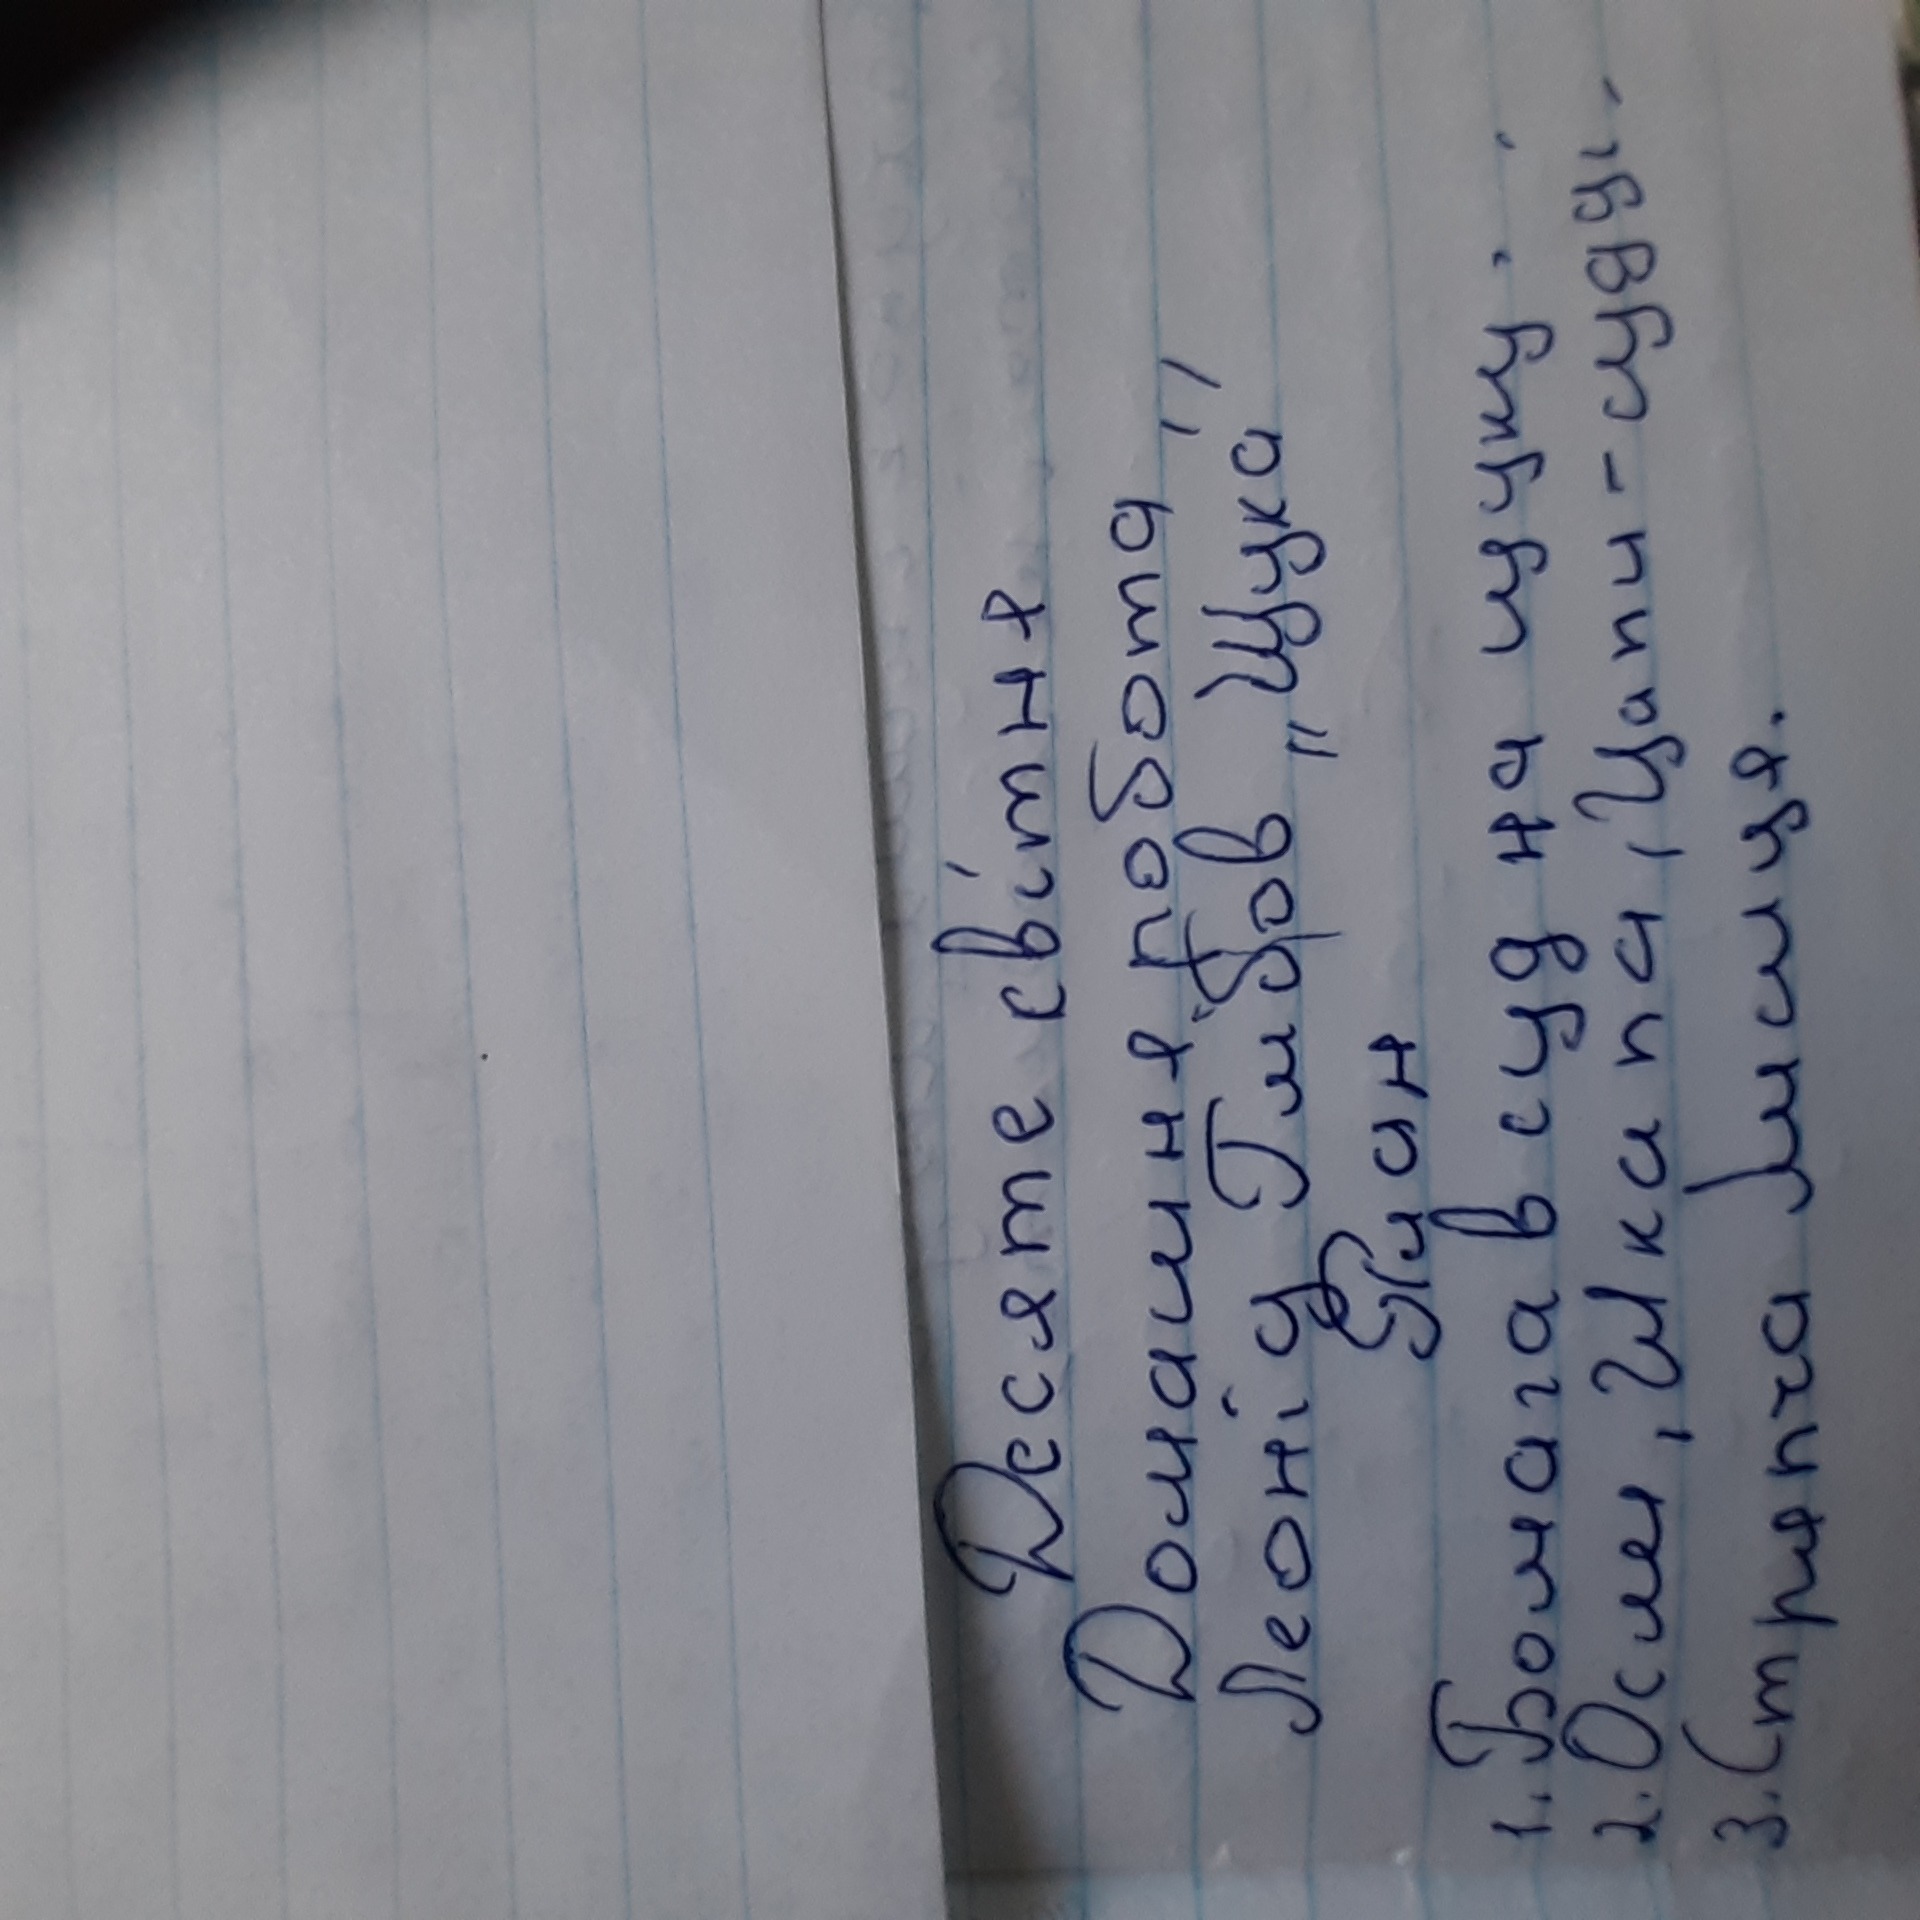 Десяте квітня
Домашня робота
Леонід Глібов „Щука"
План
1. Бомага в суд на щуку.
2. Осли, Шкапа, Цапи - судді.
3. Стряпча Лисиця.